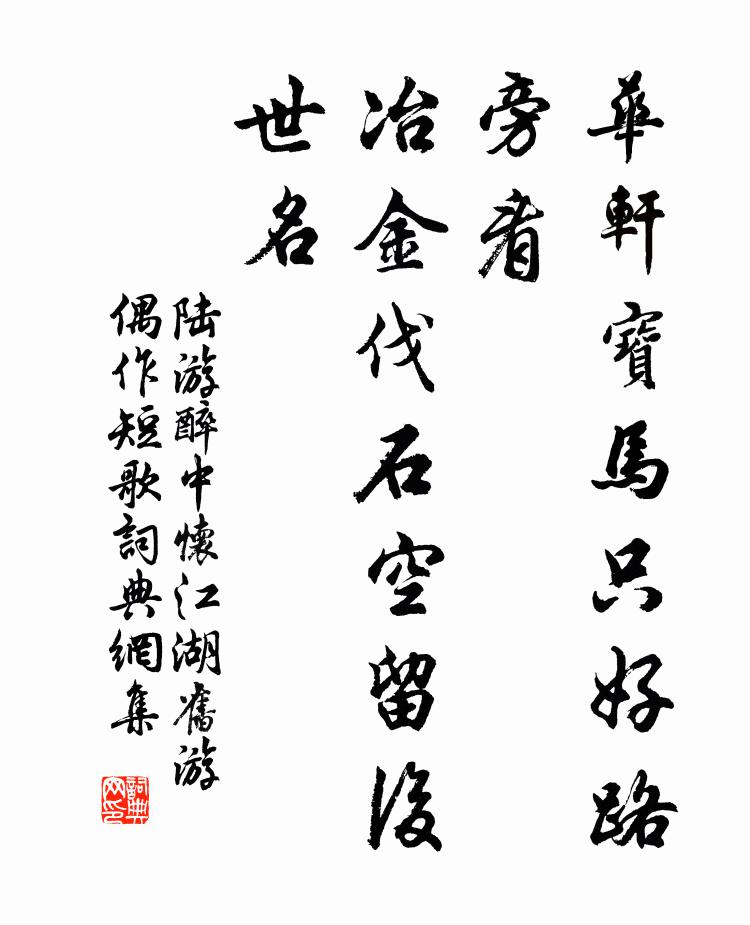 華軒寶馬只好路
旁看
冶金伐石空留後
世名
陆游醉中懷江湖舊游
偶作短歌詞典網集
詞典
网印